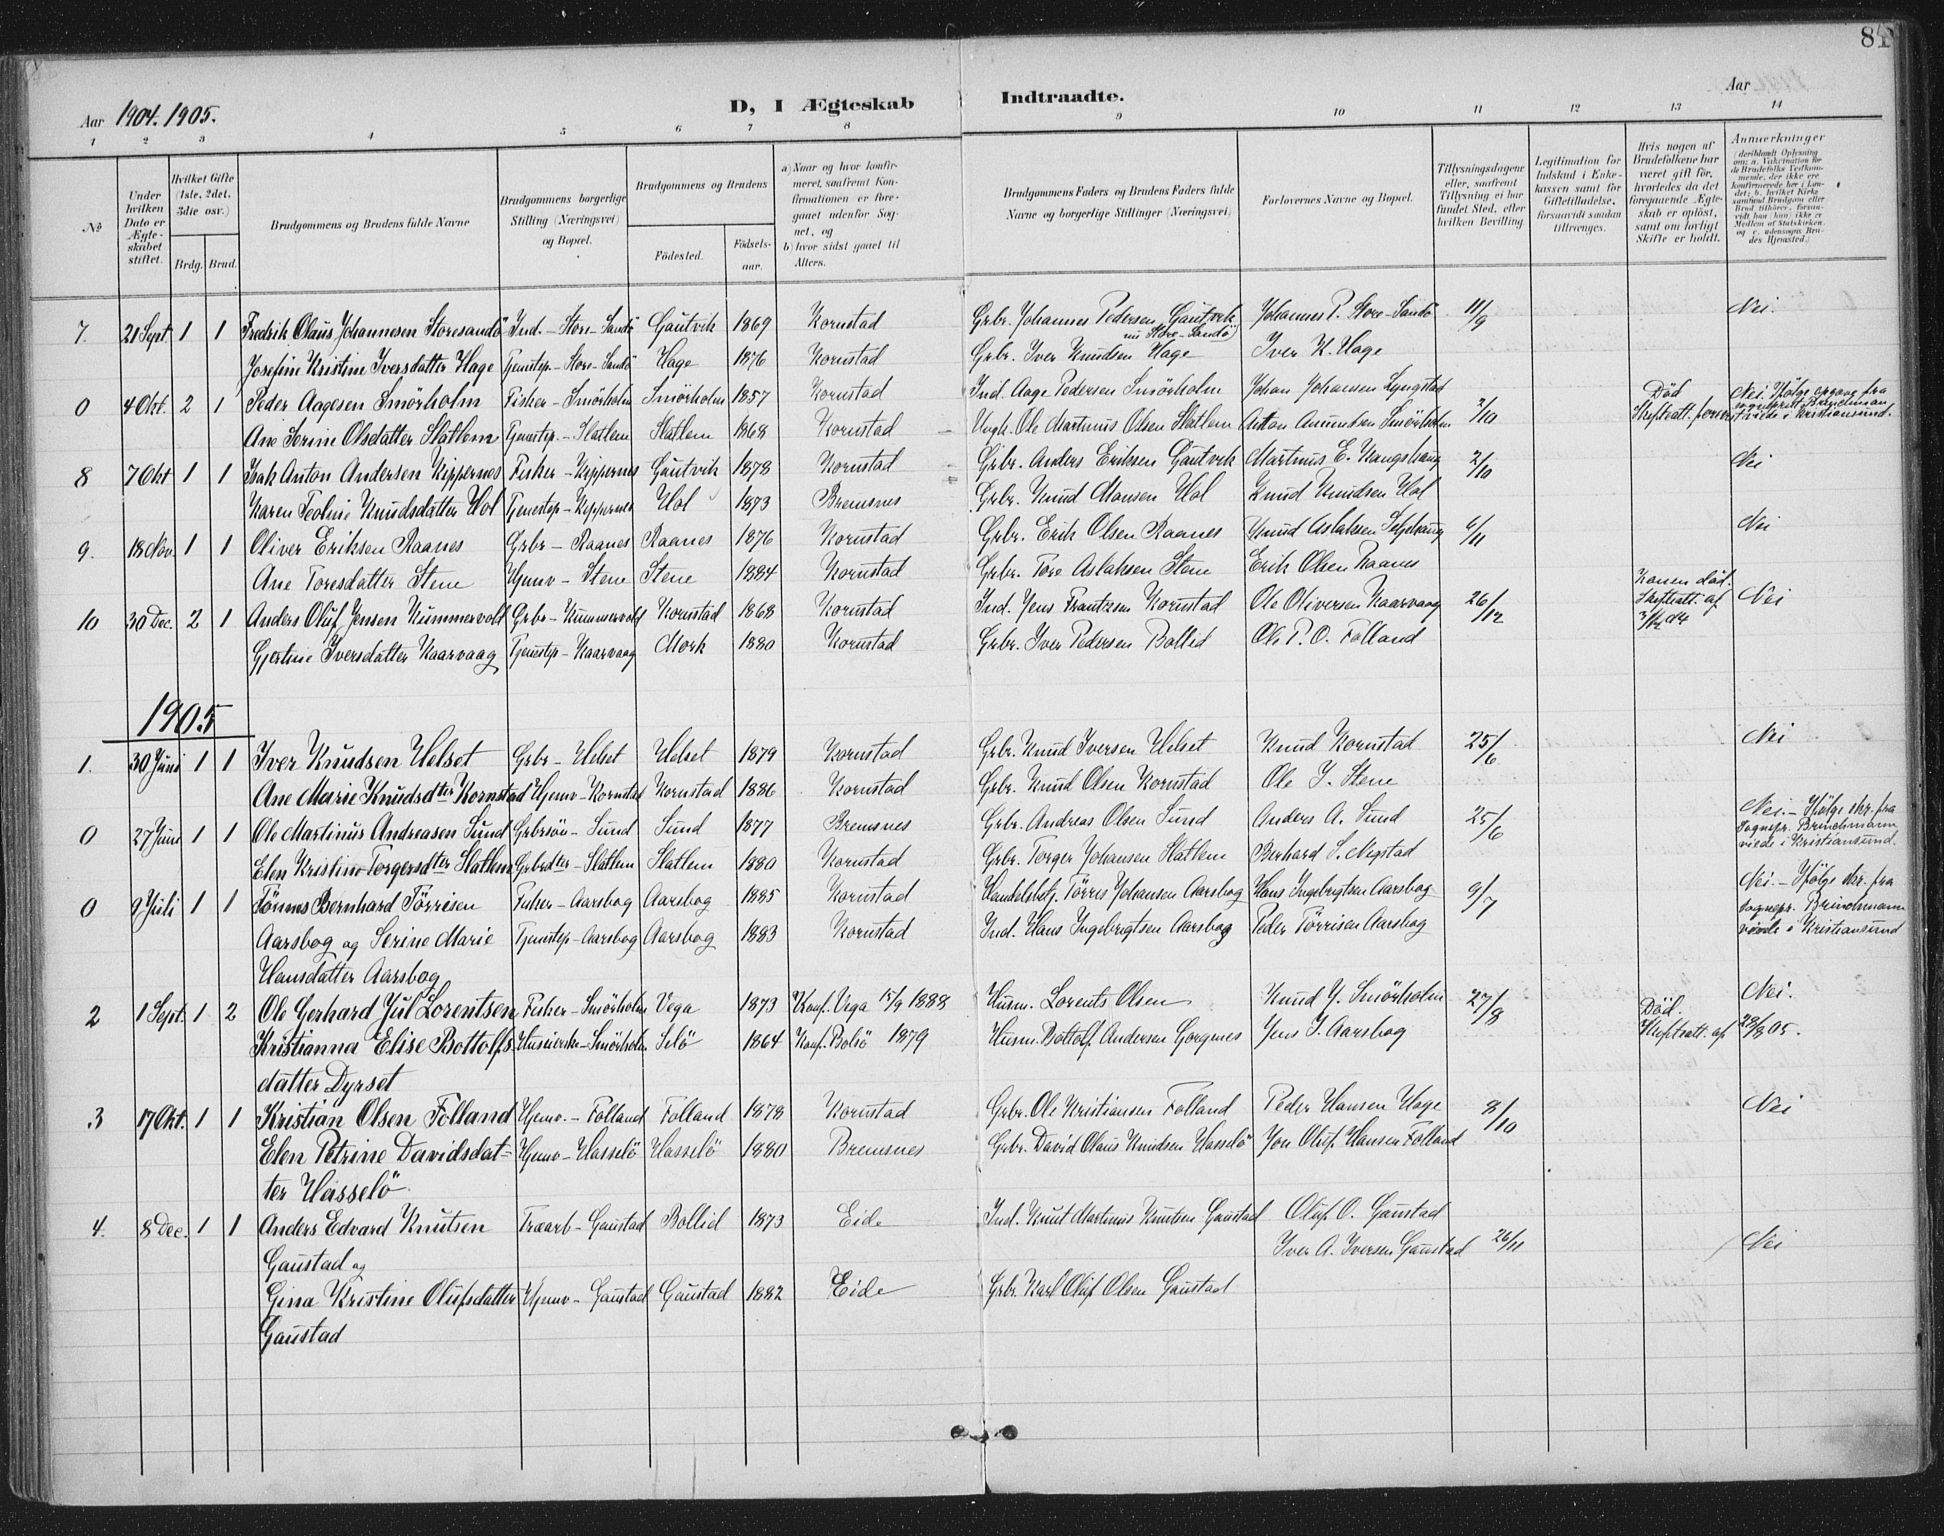 84
Aar 1904. 1905.
D, I Ægteskab Indtraadte.
Aar
1 2 3 4 5 6 7 8 9 10 11 12 13 14
No
Under hvilken Dato er Ægteskabet stiftet.
Hvilket Gifte (1ste, 2det, 3die osv.)
Brdg. Brud.
Brudgommens og Brudens fulde Navne
Brudgommens borgerlige Stilling (Næringsvei) og Bopæl.
Brudgommens og Brudens
Fødested. Fødselsaar.
a) Naar og hvor konfirmeret, saafremt Konfirmationen er foregaaet udenfor Sognet, og
b) hvor sidst gaaet til Alters.
Brudgommens Faders og Brudens Faders fulde Navne og borgerlige Stillinger (Næringsvei)
Forlovernes Navne og Bopæl.
Tillysningsdagene eller, saafremt Tillysning ei har fundet Sted, efter hvilken Bevilling
Legitimation for Indskud i Enkekassen samt for Giftetilladelse, forsaavidt saadan tiltrænges.
Hvis nogen af Brudefolkene har været gift før, hvorledes da det foregaaende Ægteskab er opløst, samt om lovligt Skifte er holdt.
Anmerkninger
7. 21 Sept. 1 1 Fredrik Olaus Johannesen Storesandö Ind. - Store-Sandö Gautvik 1869 Kornstad Grbr. Johannes Pedersen Gautvik Johannes P. Store-Sandö 11/9 Nei.
nu Store-Sandö
Josefine Kristine Iversdatter Hage Tjenestep - Store-Sandö Hage 1876 Kornstad Grbr. Iver Knudsen Hage Iver K. Hage
0 4 Okt. 2 1 Peder Aagesen Smörholm Fisker - Smörholm Smörholm 1857 Kornstad Ind. Aage Pedersen Smörholm Johan Johansen Lyngstad 2/10 Död Nei. Ifölge opgave fra
Skifteatt. Brinchmann viede i Kristiansund.
Ane Serine Olsdatter Slatlem Tjenestep - Slatlem Slatlem 1868 Kornstad Ole Martinus Olsen Slatlem Anton Amundsen Smörholm
8 7 Okt 1 1 Isak Anton Andersen Kippernes Fisker - Kippernes Gautvik 1878 Kornstad Grbr. Anders Eriksen Gautvik Martinus E. 2/10 Nei
Karen Teoline Knudsdatter Hol Tjenestep - Kippernes Hol 1873 Bremsnes Grbr. Knud Hansen Hol Knud Knudsen Hol
9. 18 Nov. 1 1 Oliver Eriksen Raanes Grbr - Raanes Raanes 1876 Kornstad Grbr. Erik Olsen Raanes Knud Aslaksen 6/11 Nei
Ane Toresdatter Stene Hjemv - Stene Stene 1884 Kornstad Grbr. Tore Aslaksen Stene Erik Olsen Raanes
10 30 Dec. 2 1 Anders Oluf Jensen Kummervold Grbr - Kummervold Kornstad 1868 Kornstad Ind. Jens Frantzen Kornstad Ole Oliversen Kaarvaag 26/12 Konen död. Skifteatt. af 3/12 04 Nei
Gjertine Iversdatter Kaarvaag Tjenestep - Kaarvaag Mork 1880 Kornstad Grbr. Iver Pedersen Bollid Ole P. O. Folland
1905
1. 30 Juni 1 1 Iver Knudsen Helset Grbr - Helset Helset 1879 Kornstad Grbr. Knud Iversen Helset Knud Kornstad 25/6 Nei
Ane Marie Knudsdter Kornstad Hjemv - Kornstad Kornstad 1886 Kornstad Grbr. Knud Olsen Kornstad Ole J. Stene
0 27 Juni 1 1 Ole Martinus Andreasen Sund Grbrsön - Sund Sund 1877 Bremsnes Grbr. Andreas Olsen Sund Anders A. Sund 25/6 Nei. - Ifölge skr. fra
Sognepr. Brinchmann
viede i Kristiansund.
Elen Kristine Torgersdter Slatlem Grbrdter - Slatlem Slatlem 1880 Kornstad Grbr. Torger Johansen Slatlem Berhard S. Nigstad
0 9 Juli 1 1 Tönnes Bernhard Törrisen Fisker - Aarsbog Aarsbog 1885 Kornstad Handelsbetj. Törris Johansen Aarsbog Hans Ingebrigtsen Aarsbog 9/7 Nei. - Ifölge skr. fra
Sognepr. Brinchmann
viede i Kristiansund
Aarsbog og Serine Marie Tjenestep - Aarsbog Aarsbog 1883 Kornstad Ind. Hans Ingebrigtsen Aarsbog Peder Törrisen Aarsbog
Hansdatter Aarsbog
2 1 Sept. 1 2 Ole Gerhard Jul Lorentsen Fisker - Smörholm Vega 1873 Konf. Vega 15/9 1888 Husm. Lorents Olsen Knud J. Smörholm 27/8 Död. Nei.
Kristianna Elise Bottolfs Husierske - Smörholm Selö 1864 Konf. Bolsö 1879 Husm. Bottolf Andersen Gorgenes Jens J. Aarsbog Skifteatt. af 28/8 05.
datter Dyrset
3 17 Okt. 1 1 Kristian Olsen Folland Hjemv. - Folland Folland 1878 Kornstad Grbr. Ole Kristiansen Folland Peder Hansen Hage 8/10 Nei
Elen Petrine Davidsdat- Hjemv - Hasselö Hasselö 1880 Bremsnes Grbr. David Olaus Knudsen Hasselö Jon Oluf Hansen Folland
ter Hasselö
4. 8 Dec. 1 1 Anders Edvard Knutsen Træarb - Gaustad Bollid 1873 Eide Ind. Knut Martinus Knutsen Gaustad Oluf O. Gaustad
Gaustad og Iver A. Iversen Gaustad 26/11 Nei
Gina Kristine Olufsdatter Hjemv - Gaustad Gaustad 1882 Eide Grbr. Karl Oluf Olsen Gaustad
Gaustad